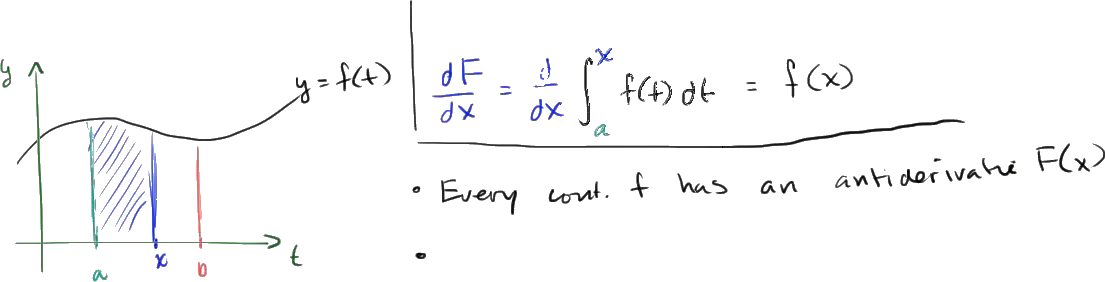 y
y = f(t)
a
x
b
t
dF/dx = d/dx ∫_a^x f(t) dt = f(x)
• Every cont. f has an antiderivative F(x)
•